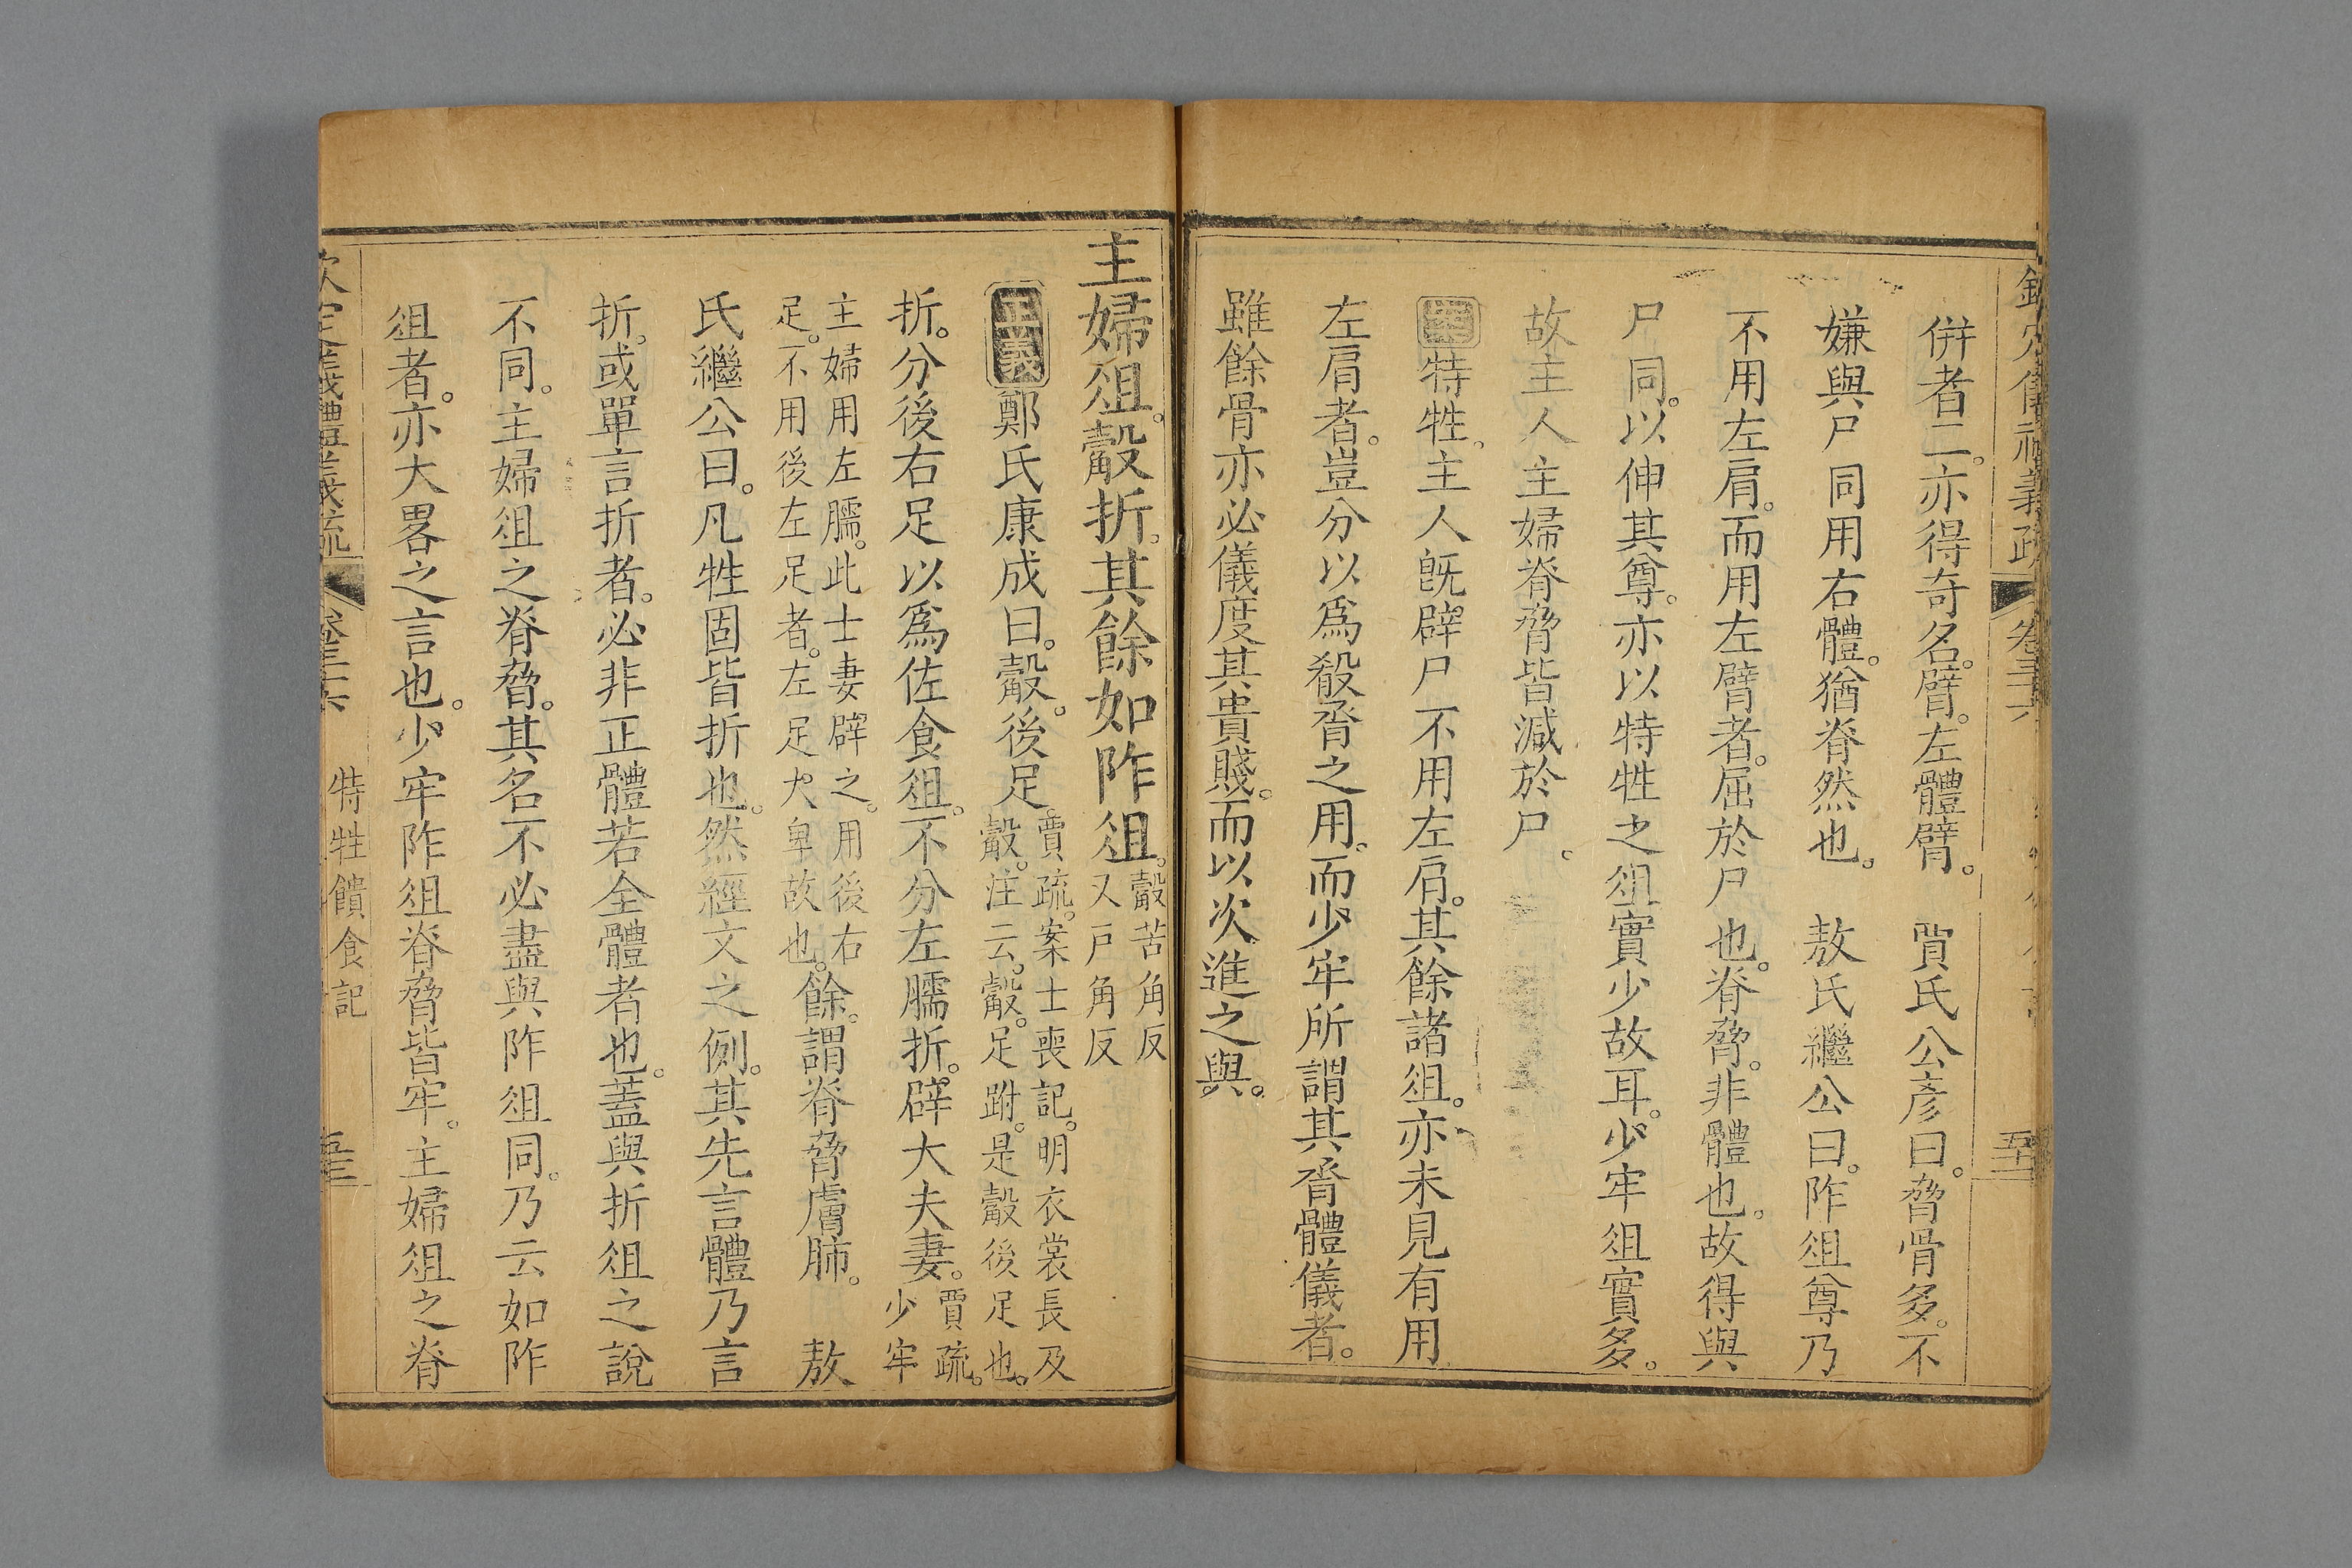 欽定儀禮義疏 卷三十六
併者二。亦得奇名。臂。左體臂。 賈氏公彥曰。脅骨多。不
嫌與尸同用右體。猶脊然也。 敖氏繼公曰。阼俎尊乃
不用左肩。而用左臂者。屈於尸也。脊脅。非體也。故得與
尸同。以伸其尊。亦以特牲之俎實少故耳。少牢俎實多。
故主人主婦脊脅皆減於尸。
案特牲。主人旣辟尸不用左肩。其餘諸俎。亦未見有用
左肩者。豈分以爲殽胥之用。而少牢所謂其胥體儀者。
雖餘骨亦必儀度其貴賤。而以次進之與。
主婦俎。觳折。其餘如阼俎。觳苦角反
又戸角反
正義鄭氏康成曰。觳。後足。賈疏。案士喪記。明衣裳長及
觳。注云。觳。足跗。是觳後足也。
折。分後右足以爲佐食俎。不分左臑折。辟大夫妻。賈疏。
少牢
主婦用左臑。此士妻辟之。用後右
足。不用後左足者。左足大卑故也。餘。謂脊脅膚肺。 敖
氏繼公曰。凡牲固皆折也。然經文之例。其先言體乃言
折。或單言折者。必非正體若全體者也。蓋與折俎之說
不同。主婦俎之脊脅。其名不必盡與阼俎同。乃云如阼
俎者。亦大畧之言也。少牢阼俎脊脅皆牢。主婦俎之脊
欽定儀禮義疏 卷三十六 特牲饋食記